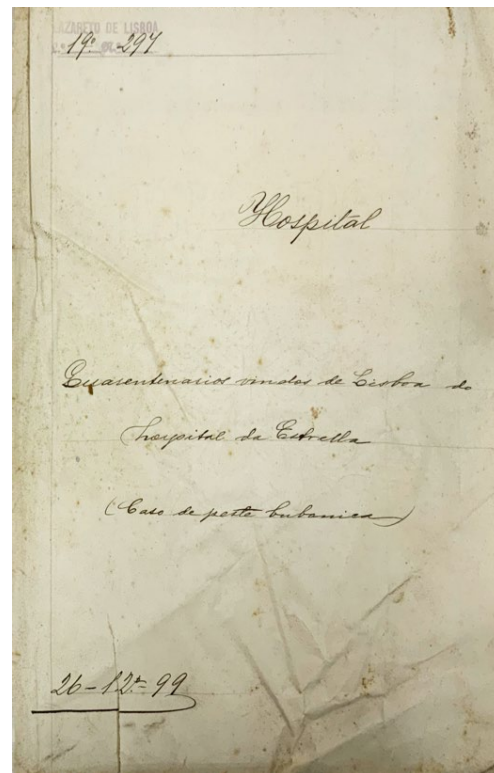 LAZARETO DE LISBOA
19º 297
Hospital
Quarentenarios vindos de Lisboa do
hospital da Estrella
(Caso de peste bubonica)
26-12-99